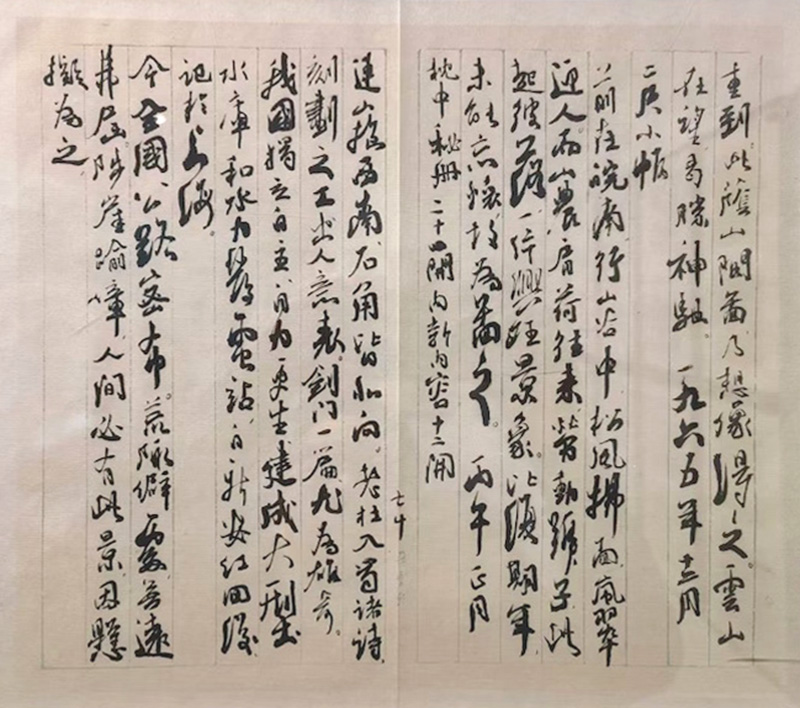 重到此蔭山閣茜乃想像得之雲山
在望曷勝神馳。一九六五年十二月
二尺小幀
前在皖南行山谷中松風拂面嵐翠
迎人而山農肩荷往来勞動號子此
起彼落一片興旺景象。比緩期年
未能忘懷均為圖之。丙午正月
枕中秘册二十四開内新内容十二開
連山接西南石角皆北向。老杜入蜀諸詩
刻劃之工出人意表。劍門一篇尤為雄奇。
我國獨立自主自力更生建成大型
水庫和水力發電站自新安江回後
記於上海。
今全國公路密布。荒陬僻處無遠
弗屆陟崖踰嶂人間必有此景因懸
擬為之